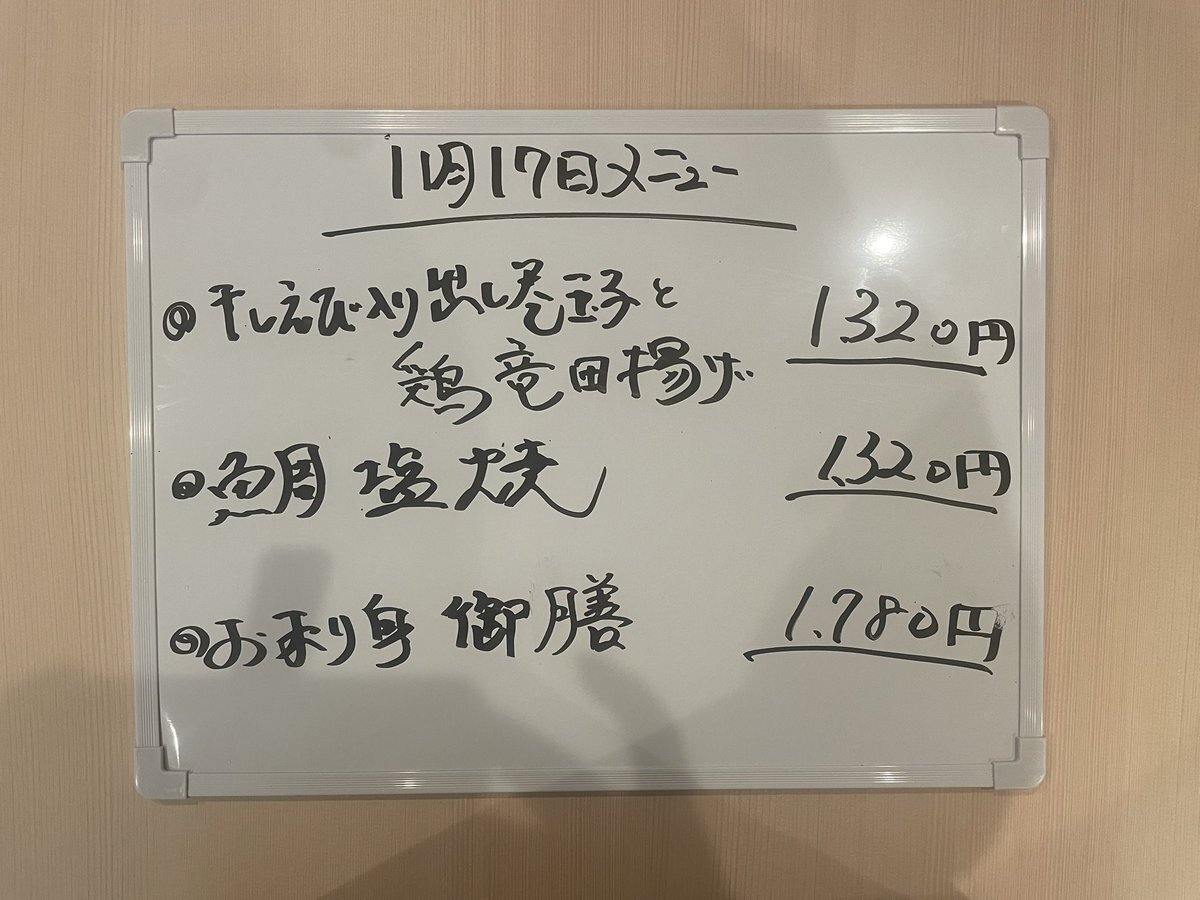 11月17日メニュー
①干しえび入り出し巻玉子と 1320円
鶏竜田揚げ
②鯛塩焼 1.320円
③お刺り身御膳 1.780円